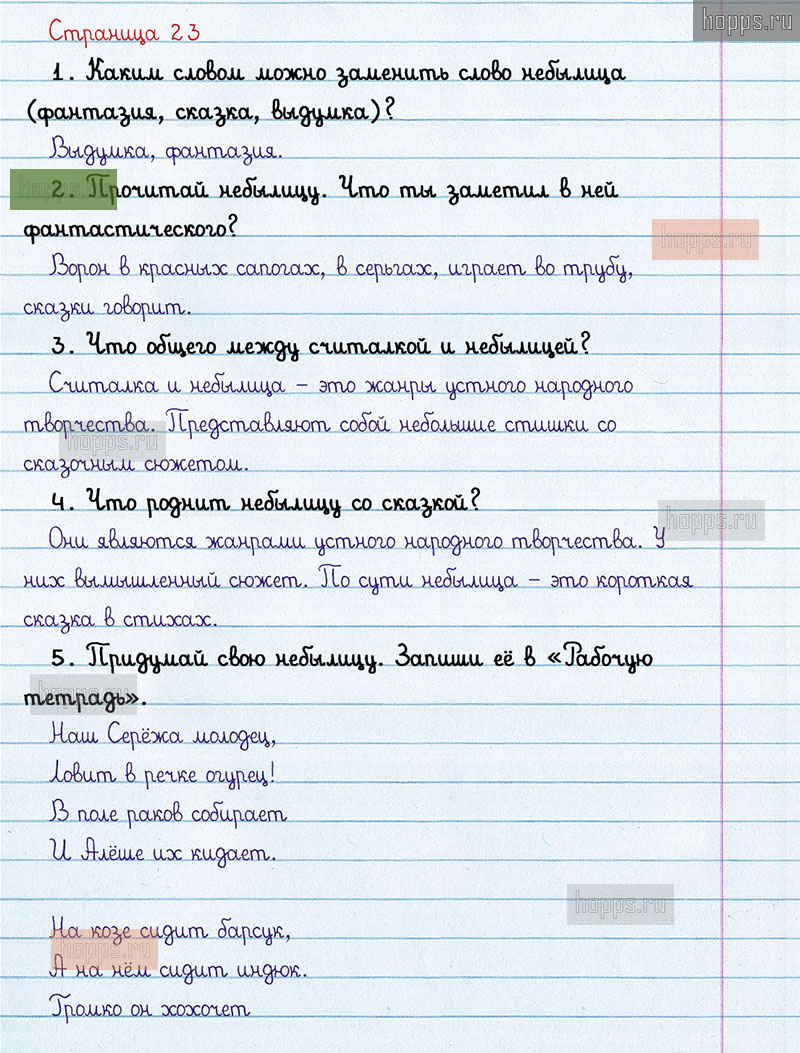 hopps.ru
Страница 23
1. Каким словом можно заменить слово небылица
(фантазия, сказка, выдумка)?
Выдумка, фантазия.
hopps.ru
2. Прочитай небылицу. Что ты заметил в ней
фантастического?
hopps.ru
Ворон в красных сапогах, в серьгах, играет во трубу,
сказки говорит.
3. Что общего между считалкой и небылицей?
Считалка и небылица – это жанры устного народного
творчества. Представляют собой небольшие стишки со
hopps.ru
сказочным сюжетом.
4. Что роднит небылицу со сказкой?
hopps.ru
Они являются жанрами устного народного творчества. У
них вымышленный сюжет. По сути небылица – это короткая
сказка в стихах.
5. Придумай свою небылицу. Запиши её в «Рабочую
тетрадь».
hopps.ru
Наш Серёжа молодец,
Ловит в речке огурец!
В поле раков собирает
И Алёше их кидает.
hopps.ru
На козе сидит барсук,
hopps.ru
А на нём сидит индюк.
Громко он хохочет